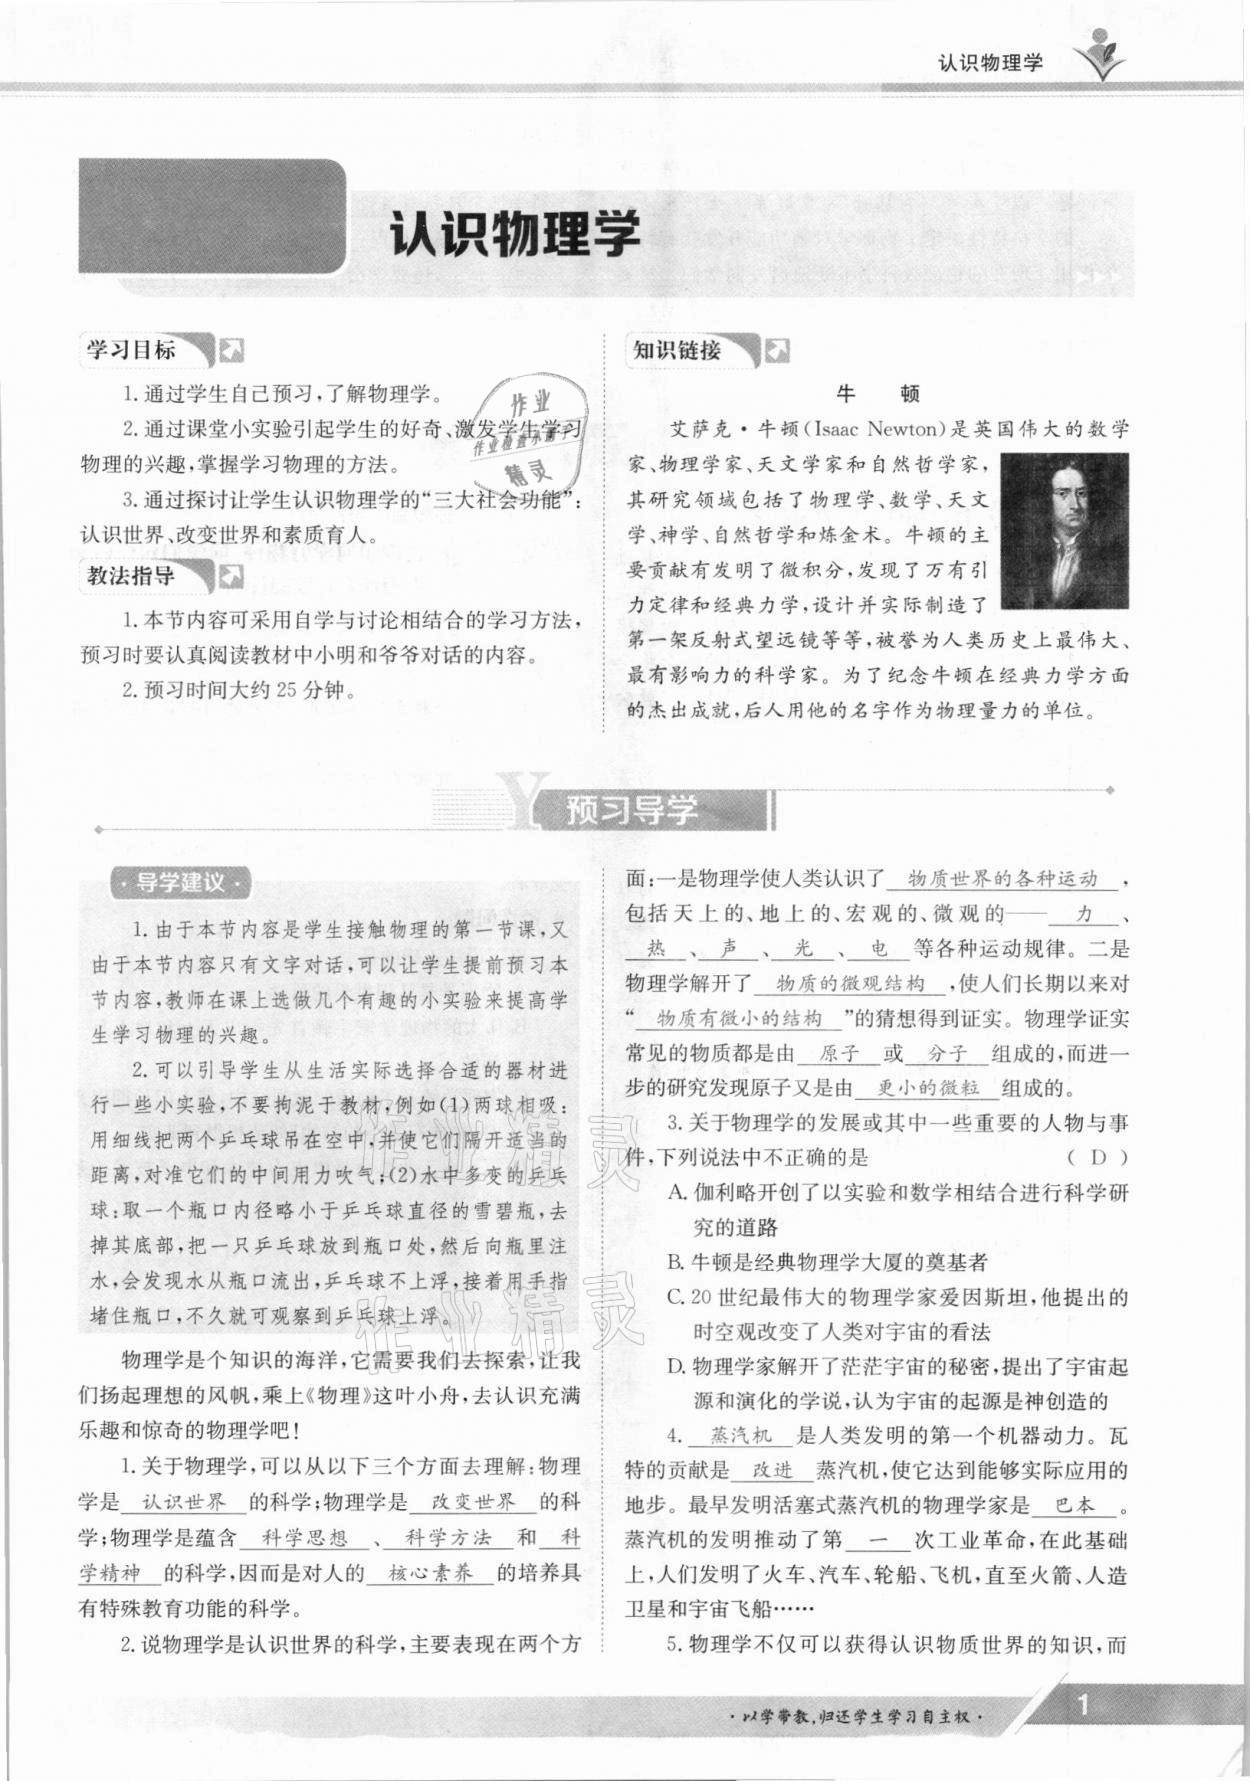 认识物理学
认识物理学
学习目标
1.通过学生自己预习,了解物理学。
2.通过课堂小实验引起学生的好奇、激发学生学习
物理的兴趣,掌握学习物理的方法。
3.通过探讨让学生认识物理学的“三大社会功能”:
认识世界、改变世界和素质育人。
教法指导
1.本节内容可采用自学与讨论相结合的学习方法,
预习时要认真阅读教材中小明和爷爷对话的内容。
2.预习时间大约25分钟。
作业
作业检查小助手
精灵
知识链接
牛 顿
艾萨克·牛顿(Isaac Newton)是英国伟大的数学
家、物理学家、天文学家和自然哲学家,
其研究领域包括了物理学、数学、天文
学、神学、自然哲学和炼金术。牛顿的主
要贡献有发明了微积分,发现了万有引
力定律和经典力学,设计并实际制造了
第一架反射式望远镜等等,被誉为人类历史上最伟大、
最有影响力的科学家。为了纪念牛顿在经典力学方面
的杰出成就,后人用他的名字作为物理量力的单位。
Y 预习导学
·导学建议·
1.由于本节内容是学生接触物理的第一节课,又
由于本节内容只有文字对话,可以让学生提前预习本
节内容,教师在课上选做几个有趣的小实验来提高学
生学习物理的兴趣。
2.可以引导学生从生活实际选择合适的器材进
行一些小实验,不要拘泥于教材,例如(1)两球相吸:
用细线把两个乒乓球吊在空中,并使它们隔开适当的
距离,对准它们的中间用力吹气;(2)水中多变的乒乓
球:取一个瓶口内径略小于乒乓球直径的雪碧瓶,去
掉其底部,把一只乒乓球放到瓶口处,然后向瓶里注
水,会发现水从瓶口流出,乒乓球不上浮,接着用手指
堵住瓶口,不久就可观察到乒乓球上浮。
作业精灵
作业精灵
物理学是个知识的海洋,它需要我们去探索,让我
们扬起理想的风帆,乘上《物理》这叶小舟,去认识充满
乐趣和惊奇的物理学吧!
1.关于物理学,可以从以下三个方面去理解:物理
学是 认识世界 的科学;物理学是 改变世界 的科
学;物理学是蕴含 科学思想 、 科学方法 和 科
学精神 的科学,因而是对人的 核心素养 的培养具
有特殊教育功能的科学。
2.说物理学是认识世界的科学,主要表现在两个方
面:一是物理学使人类认识了 物质世界的各种运动 ,
包括天上的、地上的、宏观的、微观的—— 力 、
热 、 声 、 光 、 电 等各种运动规律。二是
物理学解开了 物质的微观结构 ,使人们长期以来对
“ 物质有微小的结构 ”的猜想得到证实。物理学证实
常见的物质都是由 原子 或 分子 组成的,而进一
步的研究发现原子又是由 更小的微粒 组成的。
3.关于物理学的发展或其中一些重要的人物与事
件,下列说法中不正确的是 ( D )
A.伽利略开创了以实验和数学相结合进行科学研
究的道路
B.牛顿是经典物理学大厦的奠基者
C.20世纪最伟大的物理学家爱因斯坦,他提出的
时空观改变了人类对宇宙的看法
D.物理学家解开了茫茫宇宙的秘密,提出了宇宙起
源和演化的学说,认为宇宙的起源是神创造的
4. 蒸汽机 是人类发明的第一个机器动力。瓦
特的贡献是 改进 蒸汽机,使它达到能够实际应用的
地步。最早发明活塞式蒸汽机的物理学家是 巴本 。
蒸汽机的发明推动了第 一 次工业革命,在此基础
上,人们发明了火车、汽车、轮船、飞机,直至火箭、人造
卫星和宇宙飞船……
5.物理学不仅可以获得认识物质世界的知识,而
·以学带教,归还学生学习自主权·
1